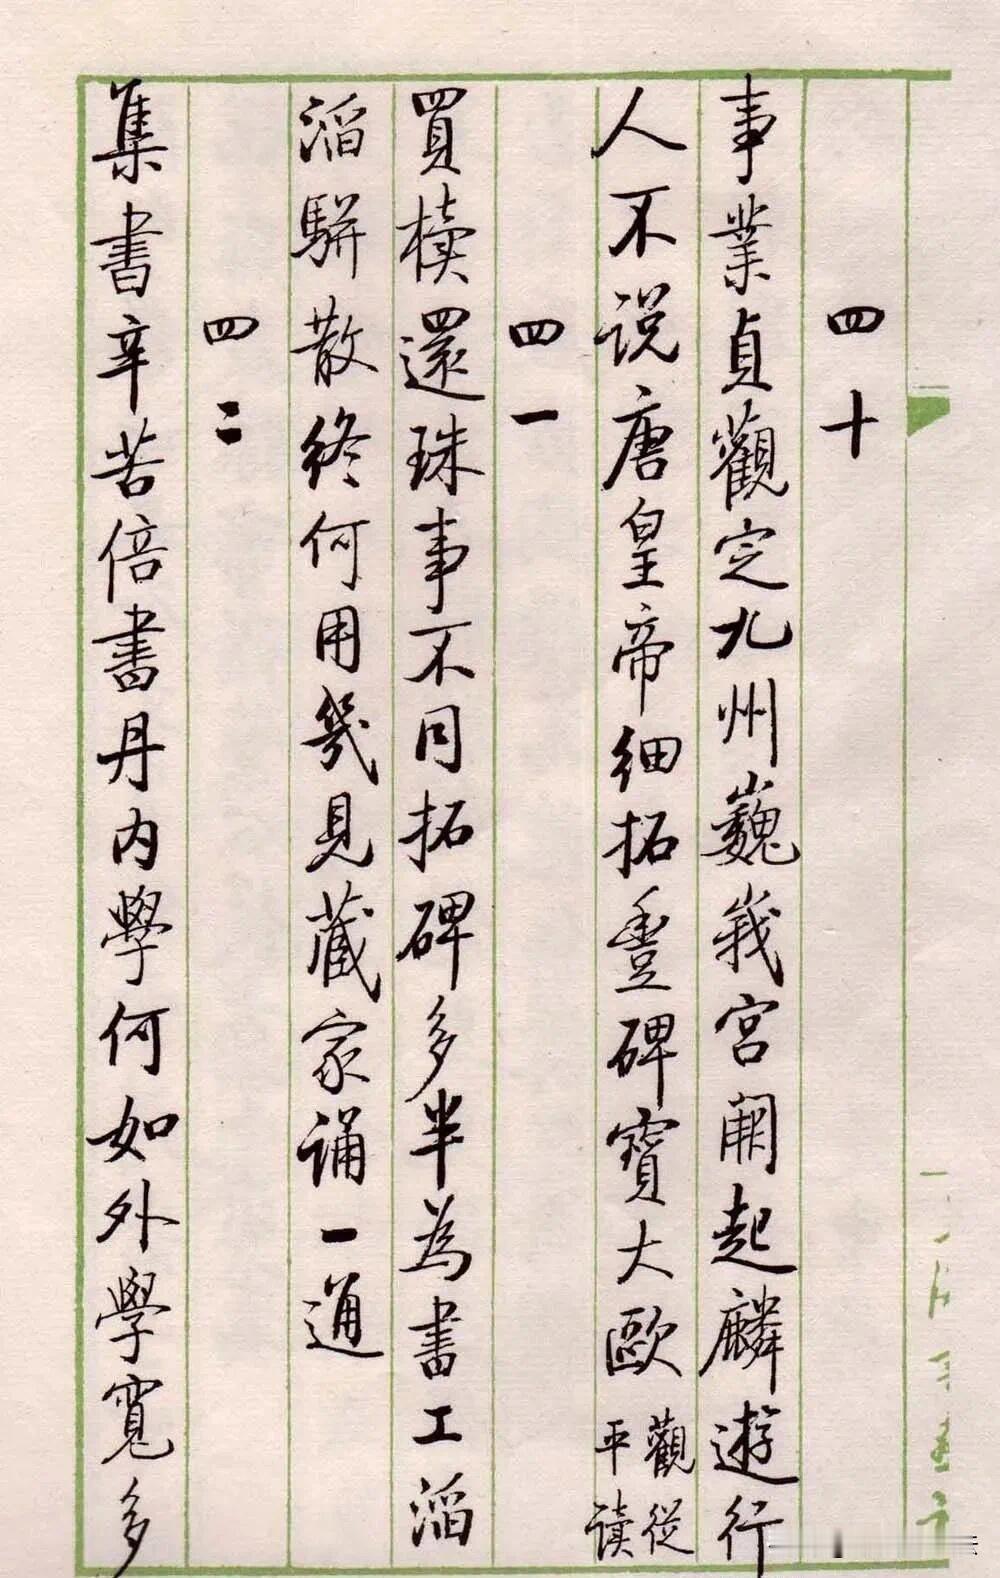 四十
事業貞觀定九州巍峩宮闕起麟遊行
人不说唐皇帝细拓豊碑寶大歐觀從平读
四一
買櫝還珠事不同拓碑多半為書工滔
滔駢散終何用幾見藏家誦一通
四二
集書辛苦倍書丹内學何如外學寬多